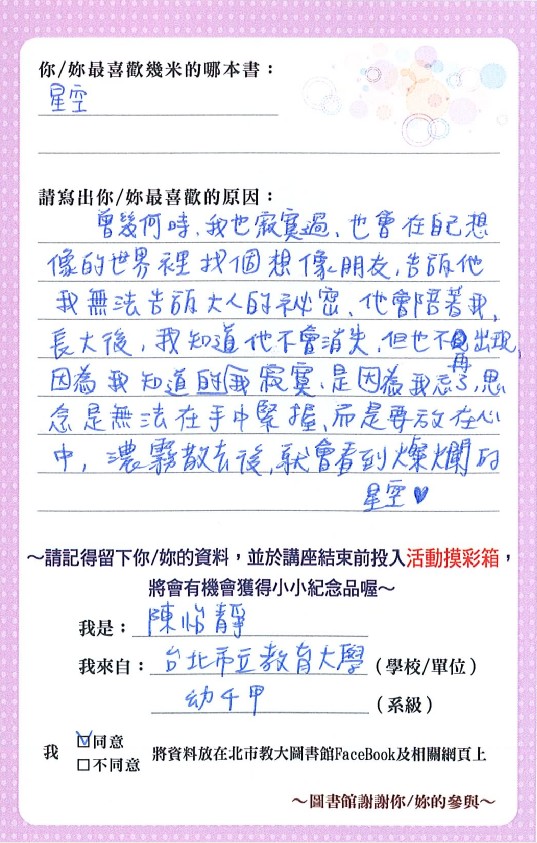 你/妳最喜歡幾米的哪本書：
星空
請寫出你/妳最喜歡的原因：
曾幾何時、我也寂寞過、也會在自己想
像的世界裡找個想像朋友,告訴他
我無法告訴大人的祕密、他會陪著我,
長大後,我知道他不會消失,但也不再出現,
因為我知道的我寂寞、是因為我忘了,思
念是無法在手中緊握、而是要放在心
中,濃霧散去後,就會看到燦爛的
星空♥
～請記得留下你/妳的資料，並於講座結束前投入活動摸彩箱，
將會有機會獲得小小紀念品喔～
我是：陳怡靜
我來自：台北市立教育大學（學校/單位）
幼千甲（系級）
我 ☑同意
□不同意 將資料放在北市教大圖書館FaceBook及相關網頁上
～圖書館謝謝你/妳的參與～